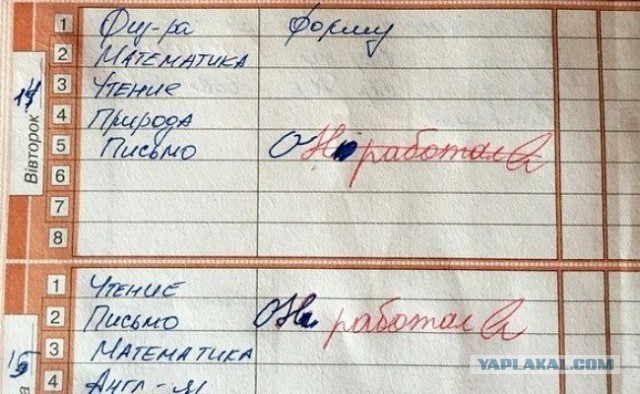 14
Вівторок
1 Физ-ра форму
2 Математика
3 Чтение
4 Природа
5 Письмо ОНа работала
6
7
8
15
1 Чтение
2 Письмо ОНа работала
3 Математика
4 Англ-я
YAPLAKAL.COM